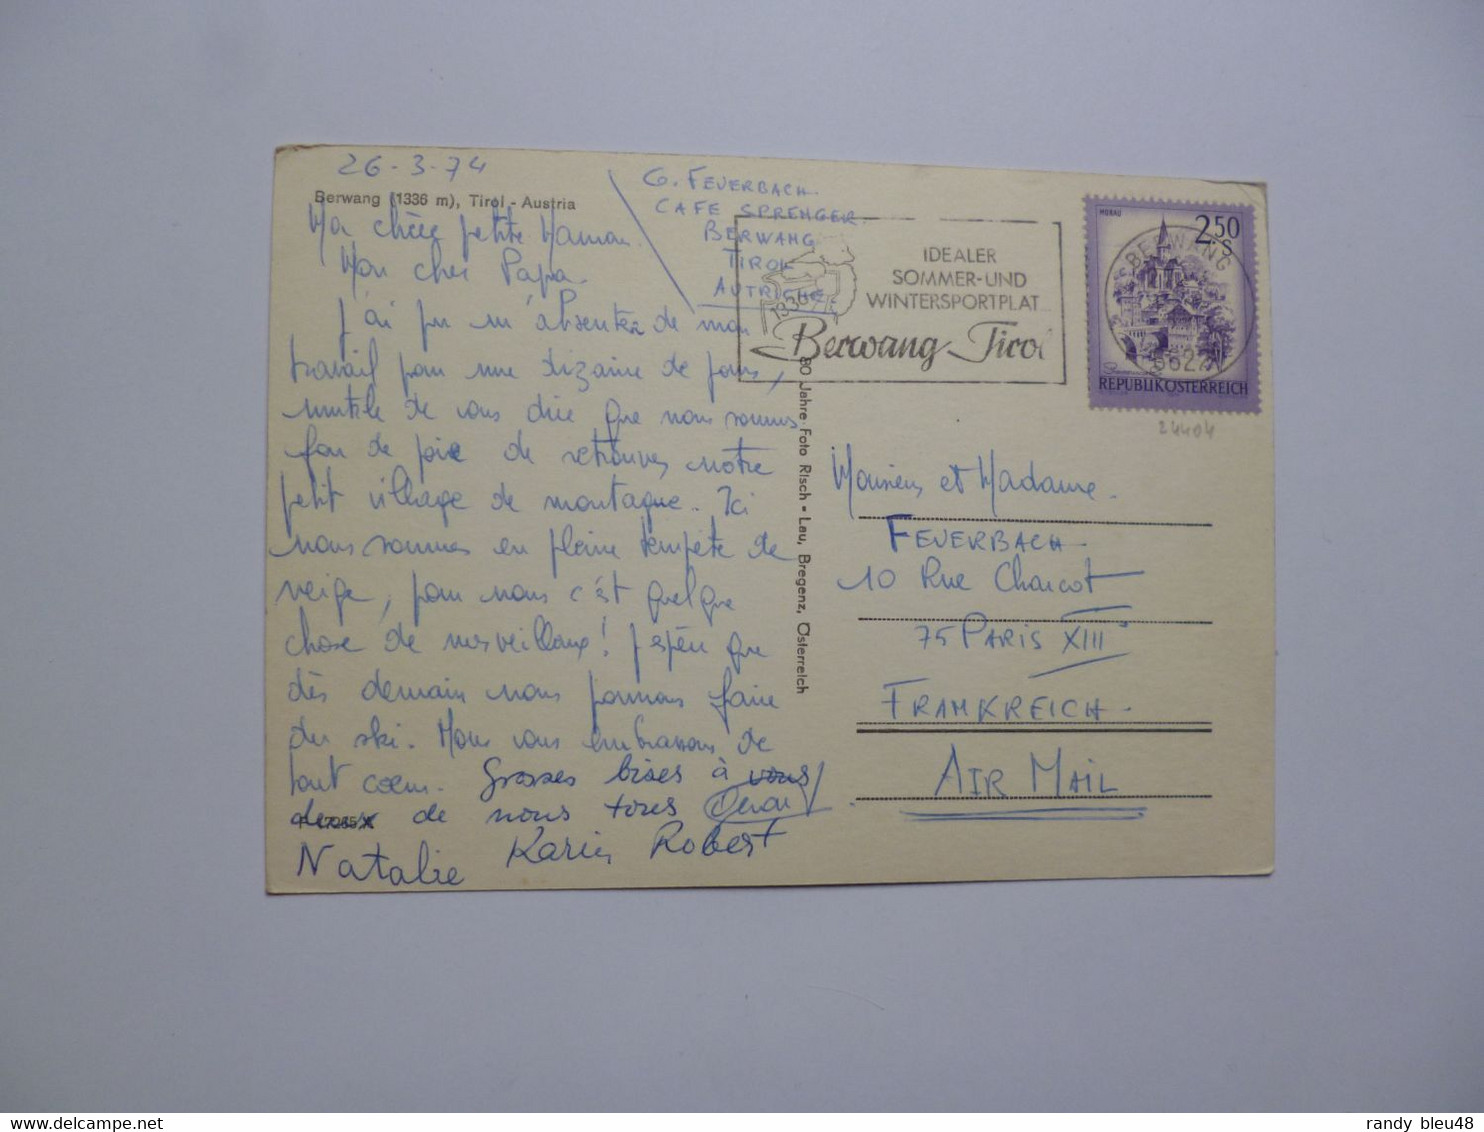 26-3-74
Berwang (1336 m), Tirol - Austria
Ma chère petite Maman
Mon cher Papa
j'ai pu m'absenter de mon
travail pour une dizaine de jours,
inutile de vous dire que nous sommes
fou de joie de retrouver notre
petit village de montagne. Ici
nous sommes en pleine tempête de
neige, pour nous c'est quelque
chose de merveilleux! J'espère que
dès demain nous pourrons faire
du ski. Nous vous embrassons de
tout coeur. Grosses bises à vous
deux de nous tous
Natalie Karin Robert
G. FEUERBACH
CAFE SPRENGER
BERWANG
TIROL
AUTRICHE
1336
IDEALER
SOMMER-UND
WINTERSPORTPLAT
Berwang Tirol
MURAU
2.50
S
BERWANG
6622
REPUBLIK ÖSTERREICH
24404
80 Jahre Foto Risch - Lau, Bregenz, Österreich
Monsieur et Madame
FEUERBACH
10 Rue Charcot
75 PARIS XIII°
FRANKREICH.
AIR MAIL
randy_bleu48